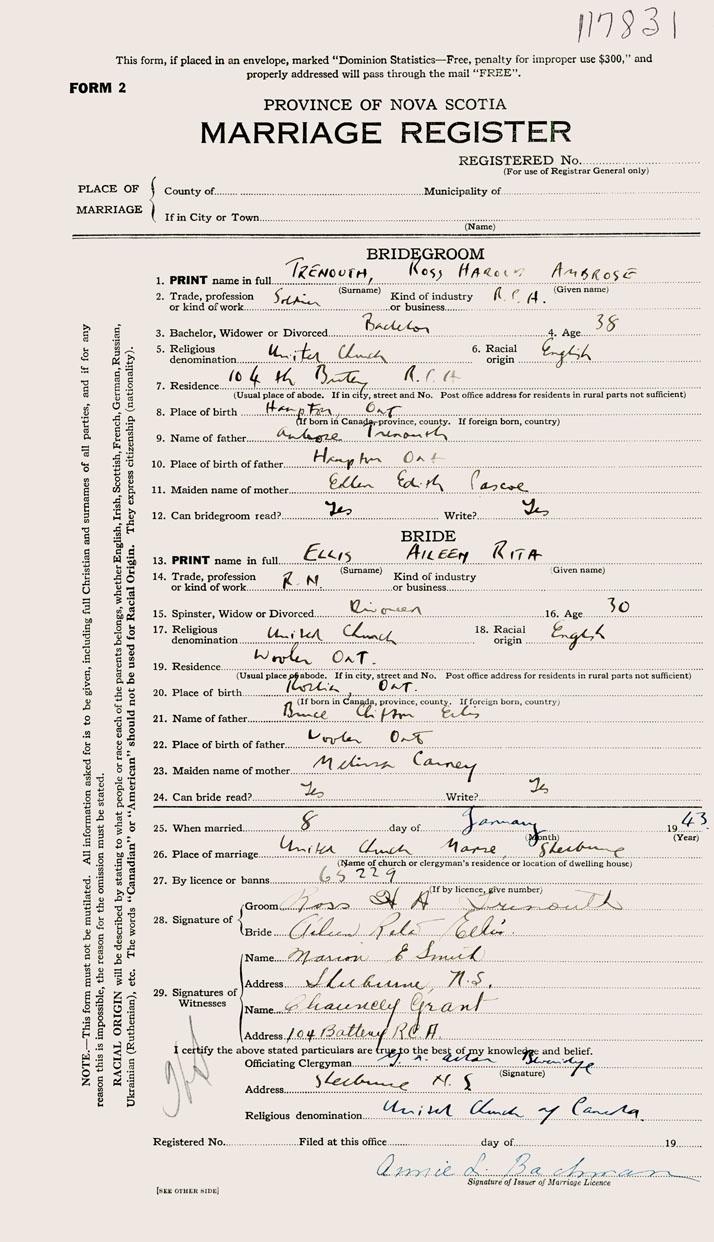 117831
This form, if placed in an envelope, marked "Dominion Statistics—Free, penalty for improper use $300," and
properly addressed will pass through the mail "FREE".
FORM 2
PROVINCE OF NOVA SCOTIA
MARRIAGE REGISTER
REGISTERED No.
(For use of Registrar General only)
PLACE OF MARRIAGE
County of Municipality of
If in City or Town
(Name)
BRIDEGROOM
1. PRINT name in full TRENOUTH, ROSS HAROLD AMBROSE
(Surname) (Given name)
2. Trade, profession or kind of work Soldier Kind of industry or business R.C.A.
3. Bachelor, Widower or Divorced Bachelor 4. Age 38
5. Religious denomination United Church 6. Racial origin English
7. Residence 104 th Battery R.C.A
(Usual place of abode. If in city, street and No. Post office address for residents in rural parts not sufficient)
8. Place of birth Hampton, Ont
(If born in Canada, province, county. If foreign born, country)
9. Name of father Ambrose Trenouth
10. Place of birth of father Hampton Ont
11. Maiden name of mother Edith Pascoe
12. Can bridegroom read? Yes Write? Yes
BRIDE
13. PRINT name in full ELLIS AILEEN RITA
(Surname) (Given name)
14. Trade, profession or kind of work R.N. Kind of industry or business
15. Spinster, Widow or Divorced Divorced 16. Age 30
17. Religious denomination United Church 18. Racial origin English
19. Residence Wooler ONT.
(Usual place of abode. If in city, street and No. Post office address for residents in rural parts not sufficient)
20. Place of birth ONT.
(If born in Canada, province, county. If foreign born, country)
21. Name of father Bruce Clifton Ellis
22. Place of birth of father Wooler Ont
23. Maiden name of mother Melissa Carney
24. Can bride read? Yes Write? Yes
25. When married 8 day of January 1943
(Month) (Year)
26. Place of marriage United Church Manse, Shelburne
(Name of church or clergyman's residence or location of dwelling house)
27. By licence or banns 65229
(If by licence, give number)
28. Signature of
Groom Ross H A Trenouth
Bride Aileen Rita Ellis.
29. Signatures of Witnesses
Name Marion E Smith
Address Shelburne, N.S.
Name Chauncely Grant
Address 104 Battery RCA.
I certify the above stated particulars are true to the best of my knowledge and belief.
Officiating Clergyman
(Signature)
Address Shelburne N.S
Religious denomination United Church of Canada.
Registered No. Filed at this office day of 19
Annie L. Bachman
Signature of Issuer of Marriage Licence
[SEE OTHER SIDE]
NOTE.—This form must not be mutilated. All information asked for is to be given, including full Christian and surnames of all parties, and if for any
reason this is impossible, the reason for the omission must be stated.
RACIAL ORIGIN will be described by stating to what people or race each of the parents belongs, whether English, Irish, Scottish, French, German, Russian,
Ukrainian (Ruthenian), etc. The words "Canadian" or "American" should not be used for Racial Origin. They express citizenship (nationality).